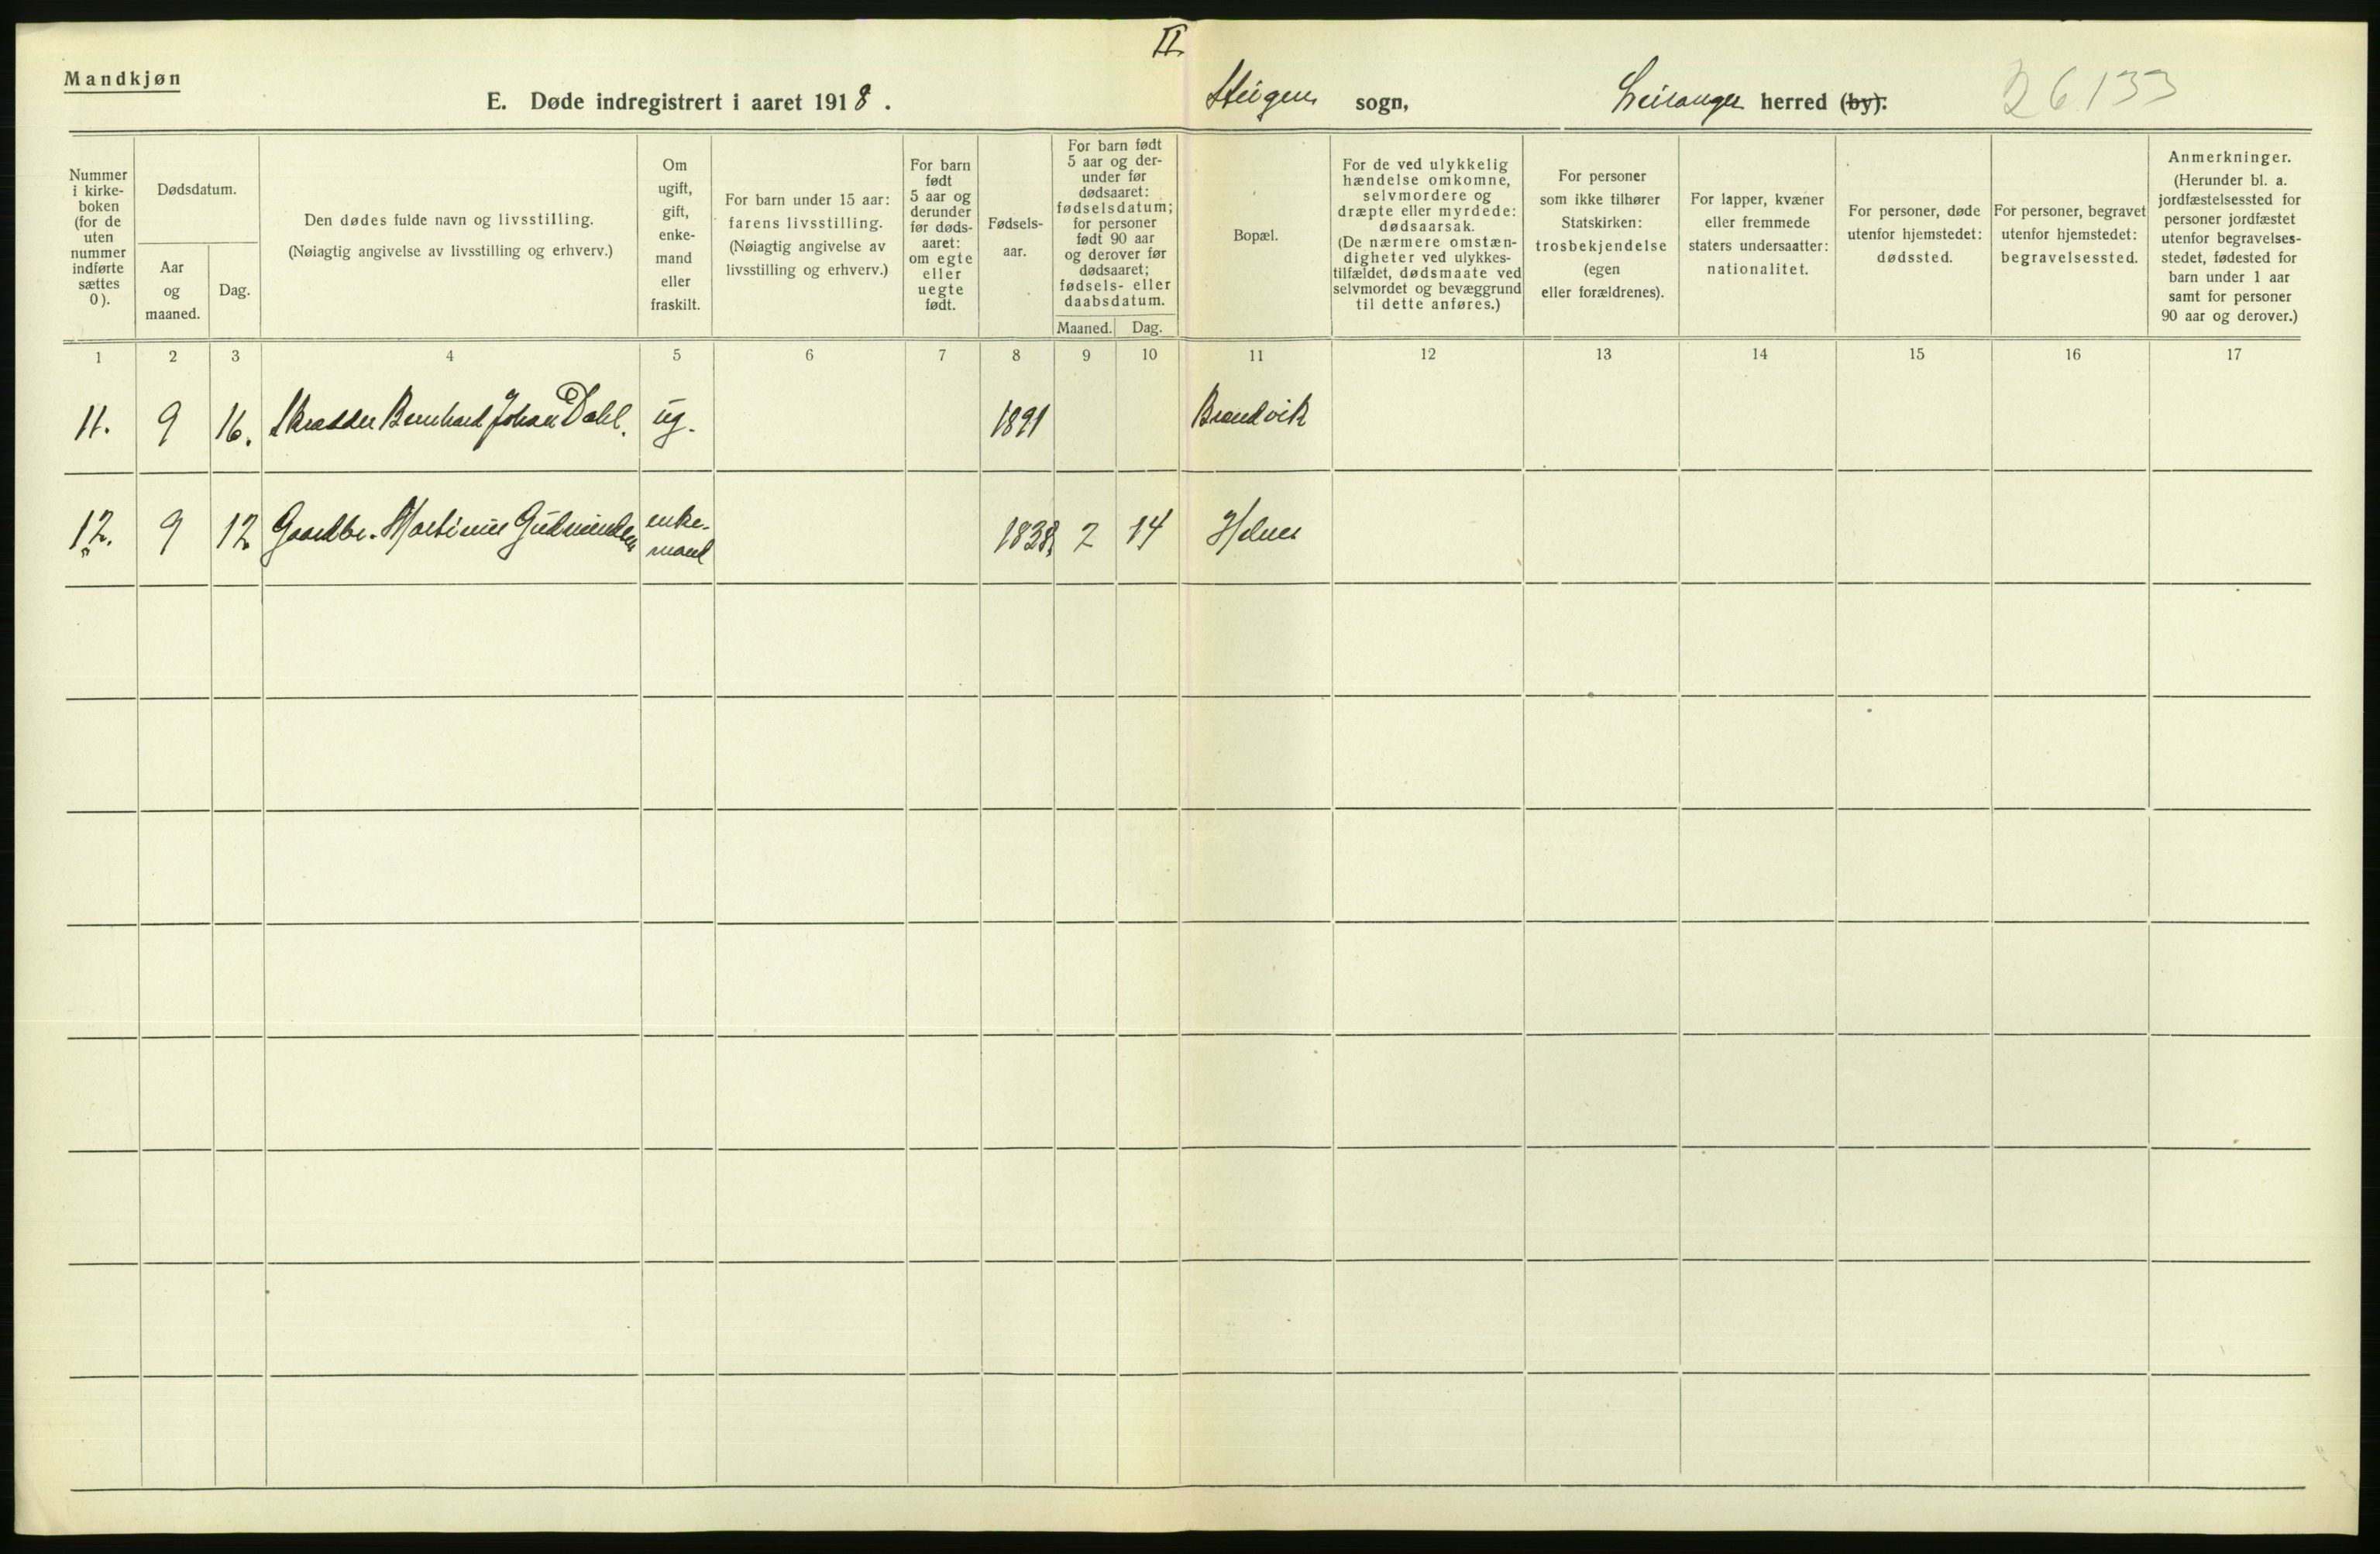 II.
Mandkjøn
E. Døde indregistrert i aaret 1918. Steigen sogn, Leiranger herred (by). 26133
Nummer i kirke-boken (for de uten nummer indførte sættes 0).
Dødsdatum.
Aar og maaned.
Dag.
Den dødes fulde navn og livsstilling.
(Nøiagtig angivelse av livsstilling og erhverv.)
Om ugift, gift, enke-mand eller fraskilt.
For barn under 15 aar: farens livsstilling.
(Nøiagtig angivelse av livsstilling og erhverv.)
For barn født 5 aar og derunder før døds-aaret: om egte eller uegte født.
Fødsels-aar.
For barn født 5 aar og der-under før dødsaaret: fødselsdatum; for personer født 90 aar og derover før dødsaaret; fødsels- eller daabsdatum.
Maaned. Dag.
Bopæl.
For de ved ulykkelig hændelse omkomne, selvmordere og dræpte eller myrdede: dødsaarsak.
(De nærmere omstæn-digheter ved ulykkes-tilfældet, dødsmaate ved selvmordet og bevæggrund til dette anføres.)
For personer som ikke tilhører Statskirken: trosbekjendelse (egen eller forældrenes).
For lapper, kvæner eller fremmede staters undersaatter: nationalitet.
For personer, døde utenfor hjemstedet: dødssted.
For personer, begravet utenfor hjemstedet: begravelsessted.
Anmerkninger.
(Herunder bl. a. jordfæstelsessted for personer jordfæstet utenfor begravelses-stedet, fødested for barn under 1 aar samt for personer 90 aar og derover.)
1 2 3 4 5 6 7 8 9 10 11 12 13 14 15 16 17
11. 9 16. Skrædder Bernhard Johan Dahl. ug. 1891 Brandvik
12. 9 12 Gaardbr. Martinus Gudmundsen enke-mand 1838 2 14 Helnes